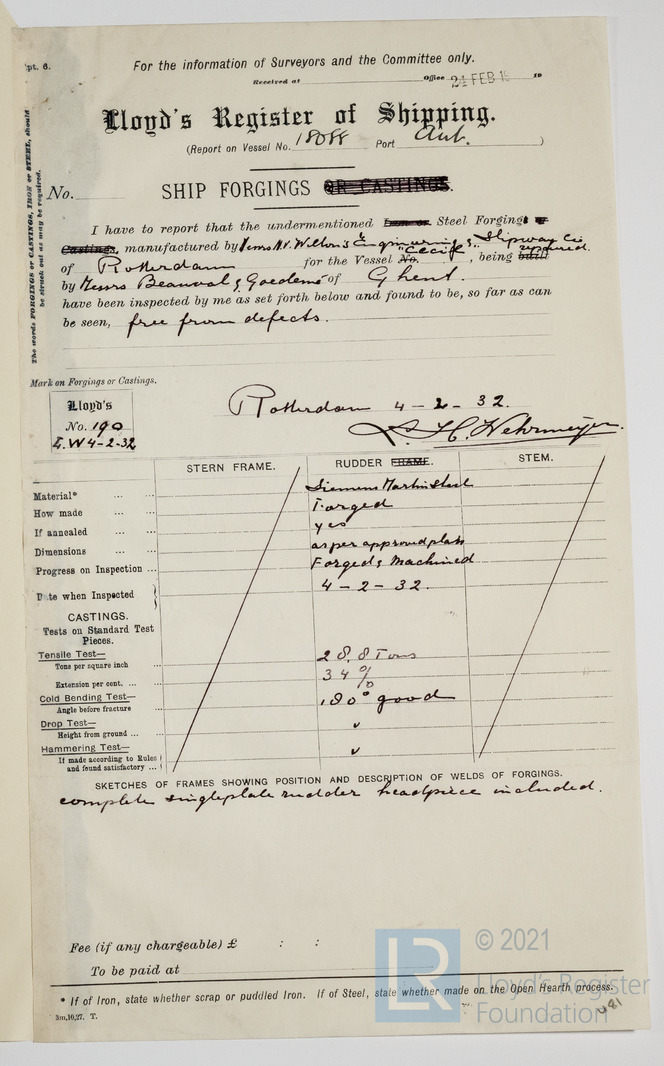 pt. 6.
For the information of Surveyors and the Committee only.
Received at Office 24 FEB 19
Lloyd's Register of Shipping.
(Report on Vessel No. 18088 Port Ant. )
The words FORGINGS or CASTINGS, IRON or STEEL, should be struck out as may be required.
No. SHIP FORGINGS OR CASTINGS.
I have to report that the undermentioned Iron or Steel Forgings or
Castings, manufactured by Messrs N.V. Wilton's Engineering & Slipway Co
of Rotterdam for the Vessel No. "Cecil", being built repaired.
by Messrs Beauval & Goedeme of Ghent
have been inspected by me as set forth below and found to be, so far as can
be seen, free from defects.
Mark on Forgings or Castings.
Lloyd's
No. 190
L.W 4-2-32
Rotterdam 4-2-32.
L. H. Wehrmeyer.
STERN FRAME. RUDDER FRAME. STEM.
Material* Siemens Martin Steel
How made Forged
If annealed yes
Dimensions as per approved plan
Progress on Inspection Forged & Machined
Date when Inspected 4-2-32.
CASTINGS.
Tests on Standard Test
Pieces.
Tensile Test—
Tons per square inch 28.8 Tons
Extension per cent. 34 %
Cold Bending Test—
Angle before fracture 180° good
Drop Test—
Height from ground
Hammering Test—
If made according to Rules
and found satisfactory
SKETCHES OF FRAMES SHOWING POSITION AND DESCRIPTION OF WELDS OF FORGINGS.
complete singleplate rudder headpiece included.
Fee (if any chargeable) £ : :
To be paid at
* If of Iron, state whether scrap or puddled Iron. If of Steel, state whether made on the Open Hearth process.
5m,10,27. T.
LR
© 2021
Lloyd's Register
Foundation